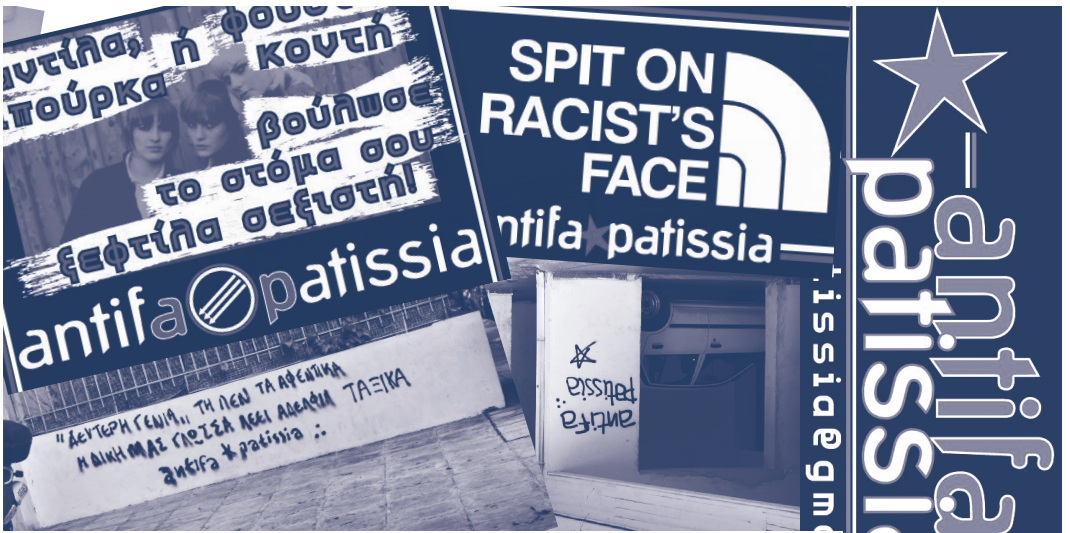 μαντίλα, ή φούστα
μπούρκα κοντή
βούλωσε
το στόμα σου
ξεφτίλα σεξιστή!
antifa patissia
SPIT ON
RACIST'S
FACE
antifa patissia
"ΔΕΥΤΕΡΗ ΓΕΝΙΑ" ΤΗ ΛΕΝ ΤΑ ΑΦΕΝΤΙΚΑ
Η ΔΙΚΗ ΜΑΣ ΓΛΩΣΣΑ ΛΕΕΙ ΑΔΕΛΦΙΑ ΤΑΞΙΚΑ
antifa patissia
antifa
patissia
issia@gm
antifa
patissi